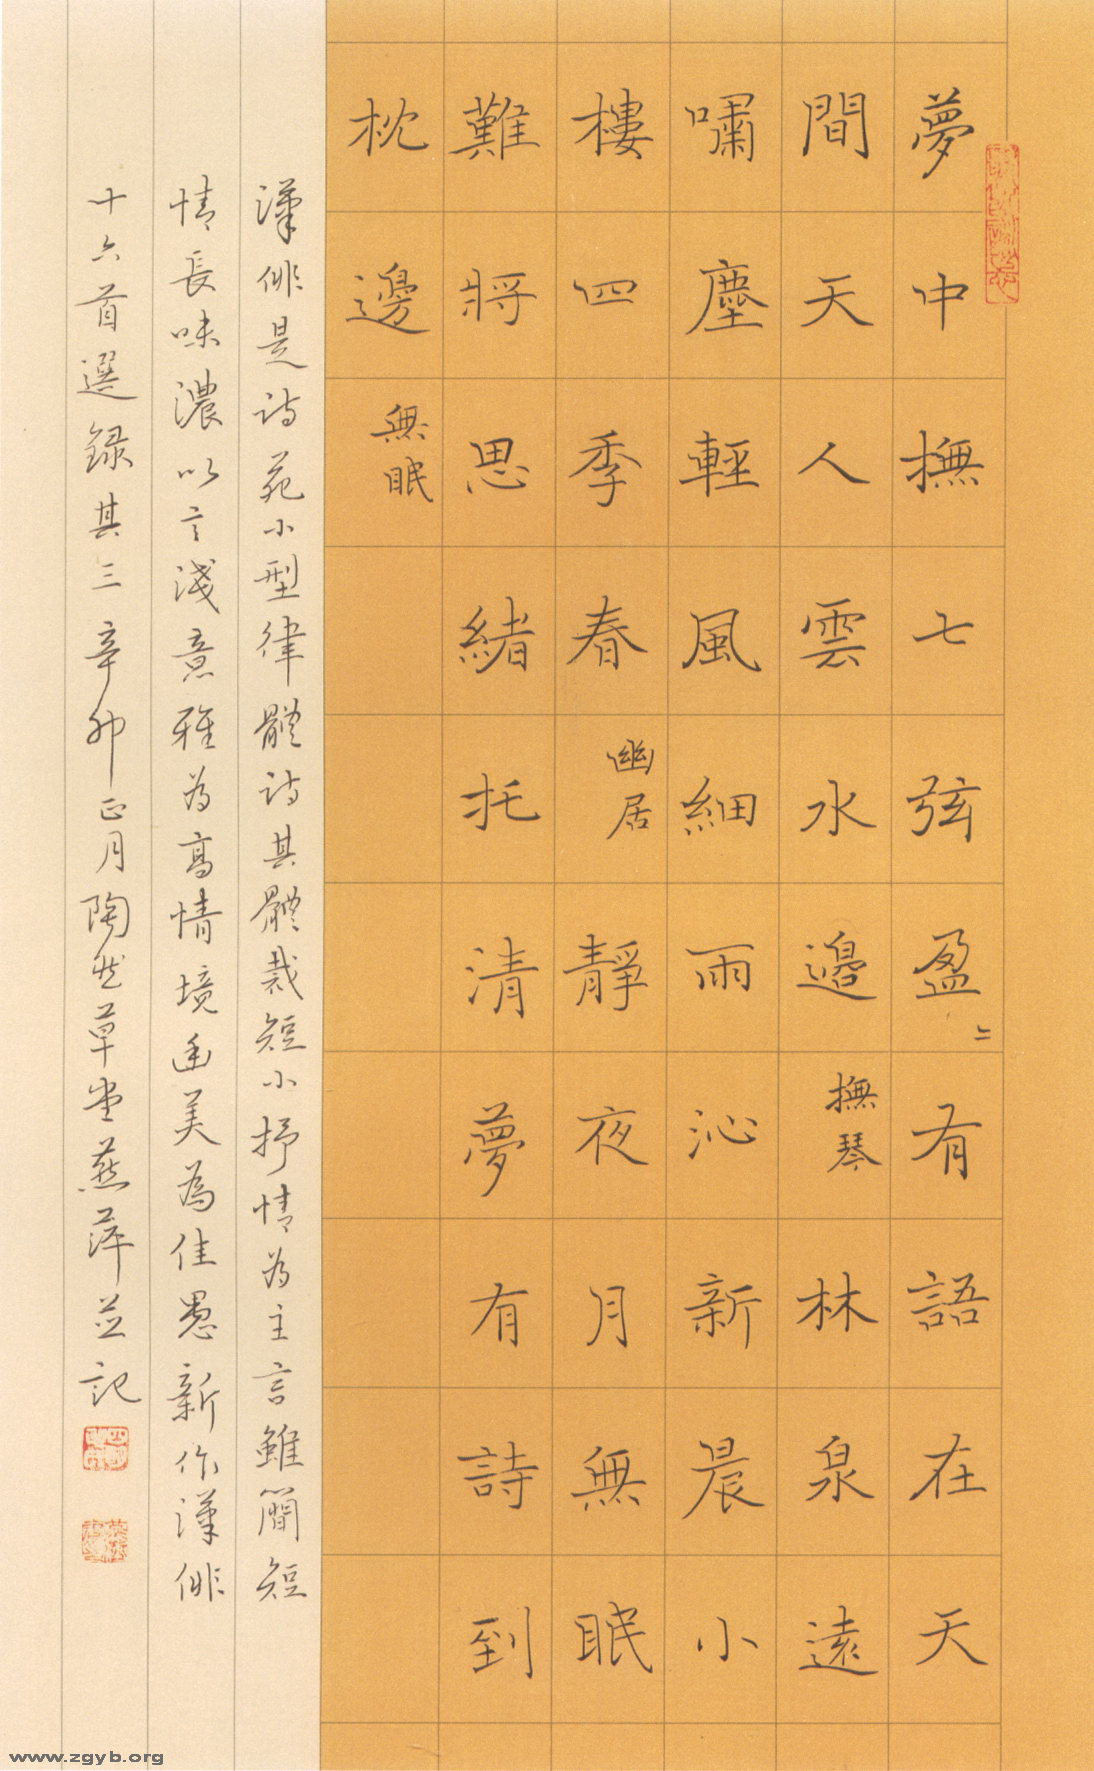 夢中撫七弦盈二有語在天
間天人雲水邊撫琴林泉遠
嘯塵輕風細雨沁新晨小
樓四季春幽居靜夜月無眠
難將思緒托清夢有詩到
枕邊無眠
漢俳是詩苑小型律體詩其體裁短小抒情為主言雖簡短
情長味濃以言淺意雅為高情境幽美為佳愚新作漢俳
十六首選録其三辛卯正月陶然草堂燕萍並記
www.zgyb.org